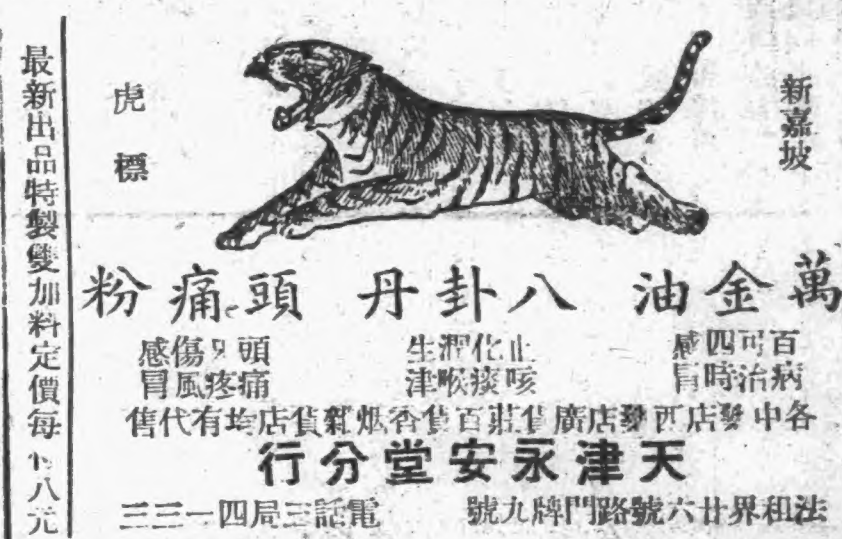 新嘉坡
虎標
萬金油 八卦丹 頭痛粉
百病可治四時感冒
止咳化痰潤喉生津
頭痛牙疼傷風感冒
各中藥店西藥店廣貨莊百貨香烟雜貨店均有代售
天津永安堂分行
法和界廿六號路門牌九號 電話三局四一三三
最新出品特製雙加料定價每八元